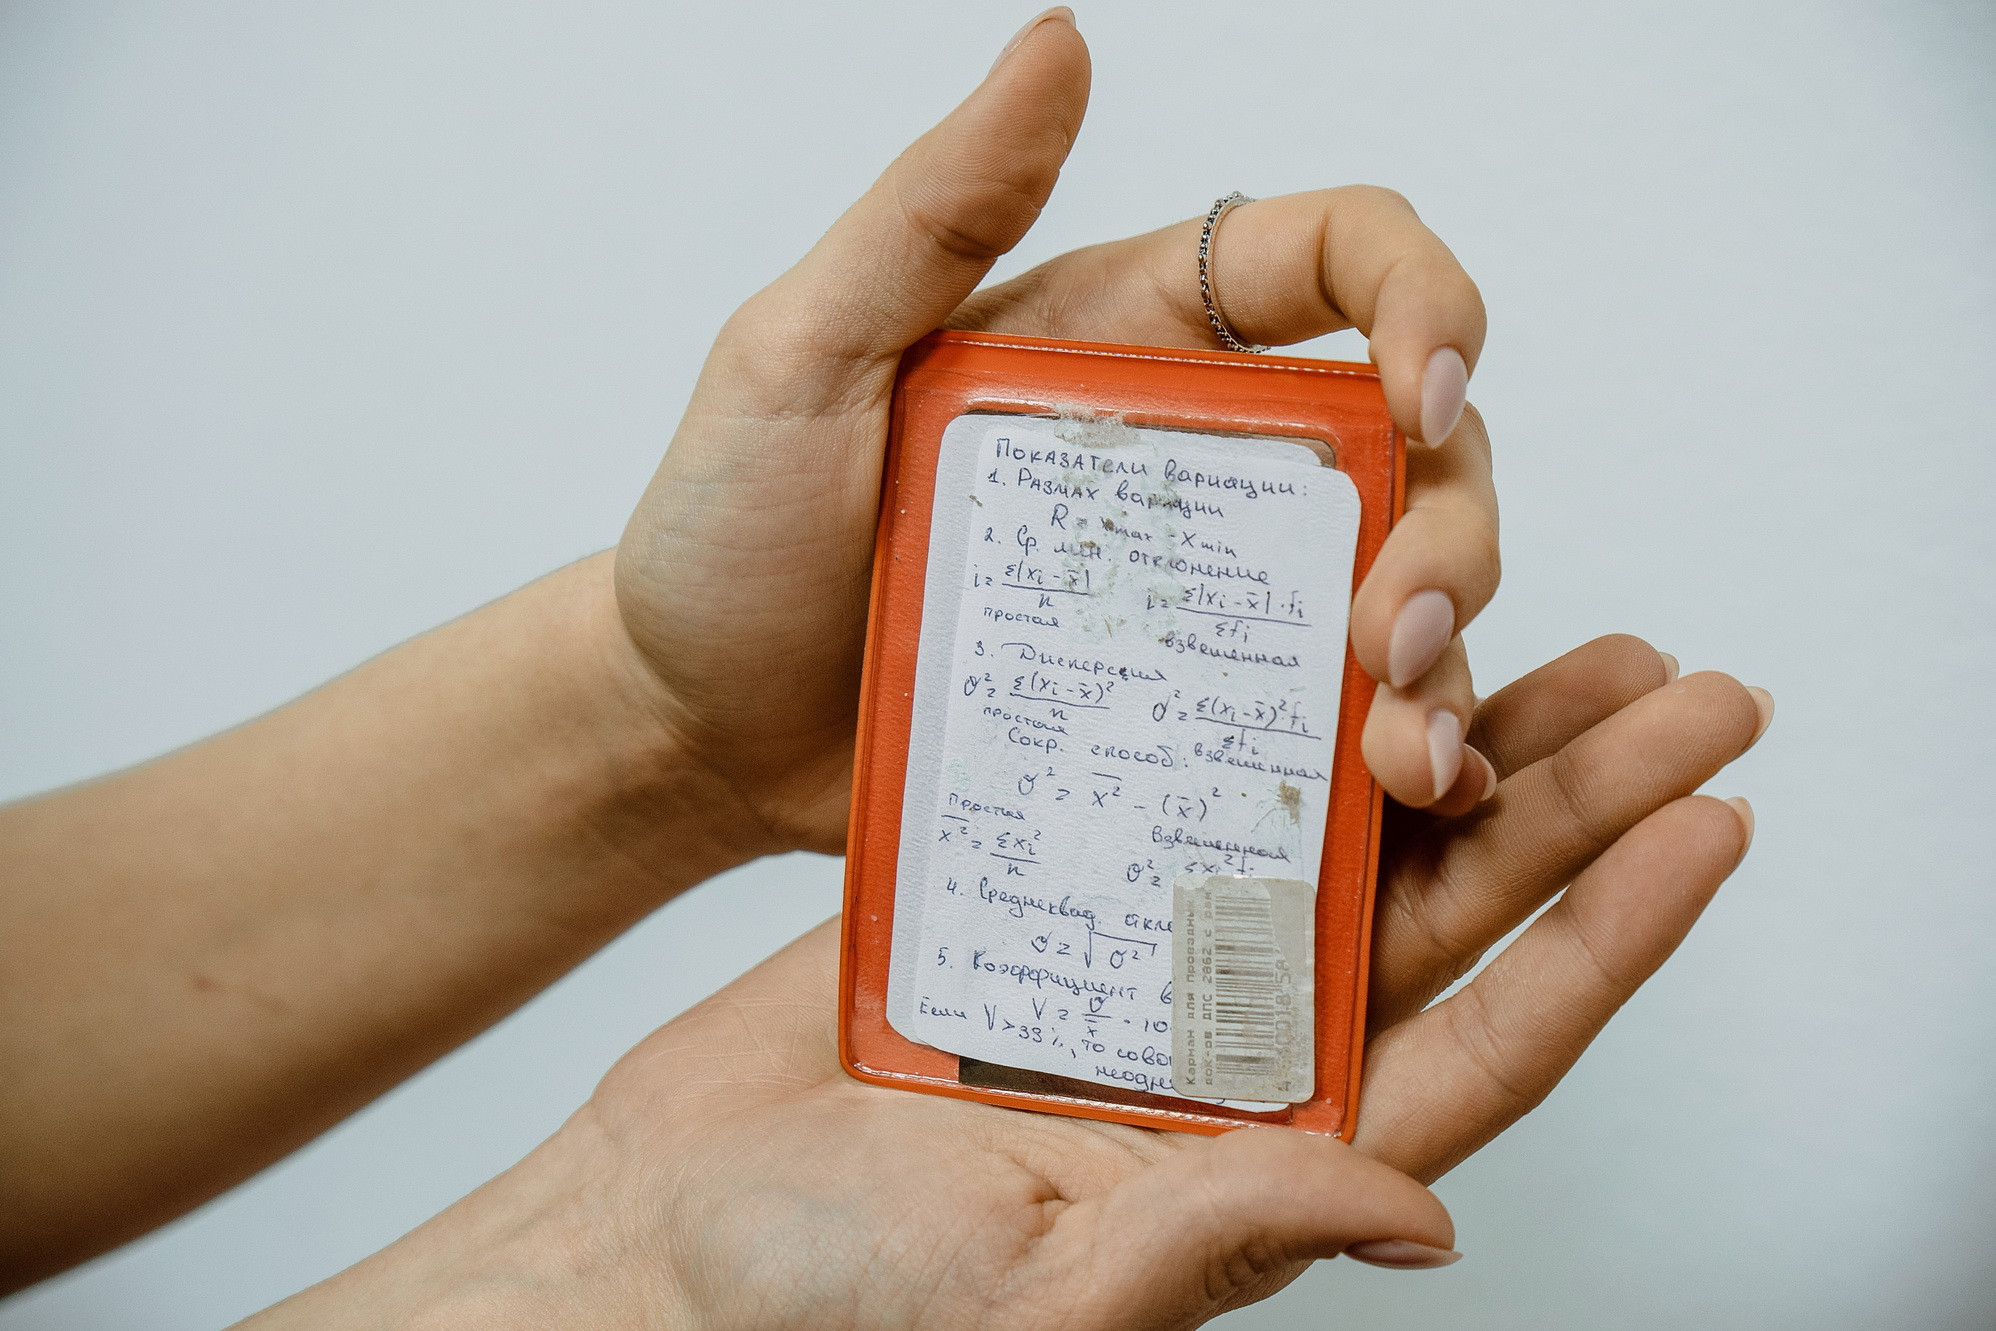 Показатели вариации:
1. Размах вариации
R = xmax - xmin
2. Ср. лин. отклонение
i = Σ|xi - x̄| / n
i = Σ|xi - x̄| · fi / Σfi
простая
взвешенная
3. Дисперсия
σ² = Σ(xi - x̄)² / n
σ² = Σ(xi - x̄)² · fi / Σfi
простая
взвешенная
Сокр. способ:
σ² = x̄² - (x̄)²
простая
взвешенная
x̄² = Σxi² / n
σ² = Σxi² fi
4. Среднеквад. откло
σ = √σ²
5. Коэффициент в
V = σ / x̄ · 10
Если V > 33%, то сово
неодн
Карман для проездных
док-ов ДПС 2862 с рон